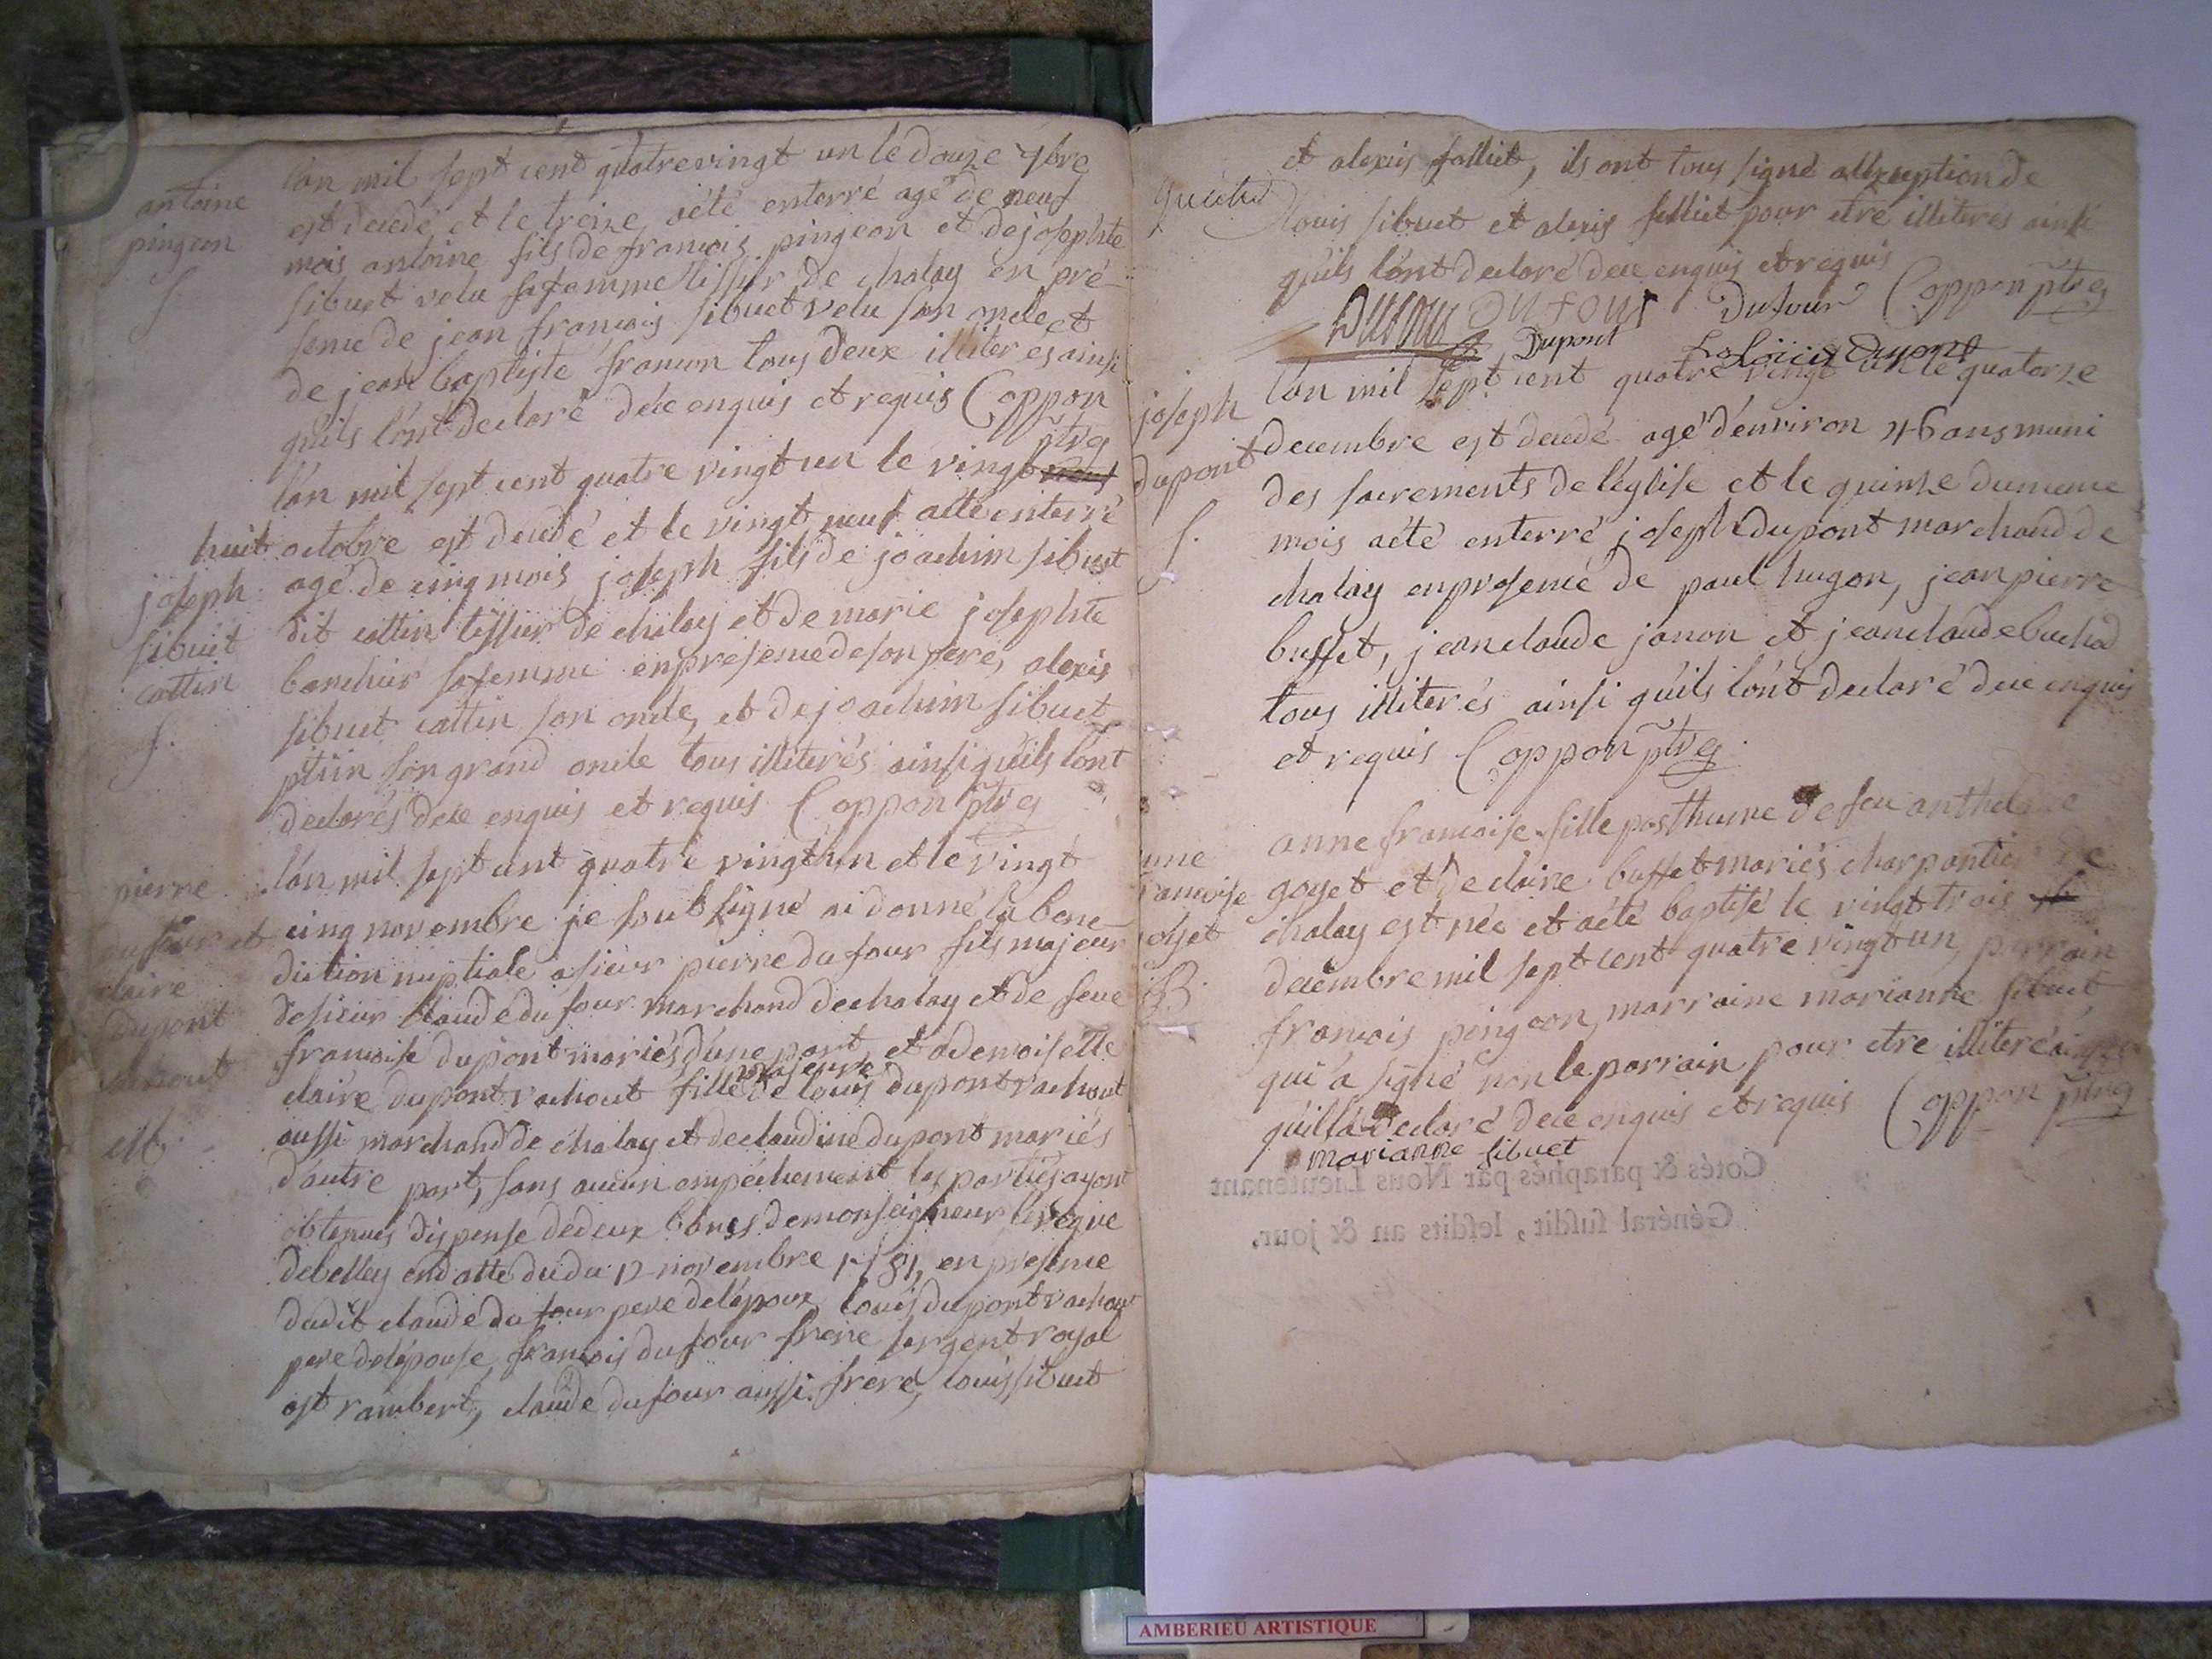 l'an mil sept cent quatrevingt un le douze 7bre
antoine
pingeon
est decedé et le treize aété enterré agé de neuf
mois antoine fils de francois pingeon et de josephte
S.
sibuet velu sa femme tissier de chaley en pre-
sence de jean francois sibuet velu son oncle et
de jean baptiste francon tous deux illiterés ainsi
qu'ils l'ont declaré dece enquis et requis Coppon
ptre
l'an mil sept cent quatre vingt un le vingt neuf
huit octobre est decedé et le vingt neuf aété enterré
joseph
sibuet
cottin
S.
agé de cinq mois joseph fils de joachim sibuet
dit cottin tissier de chaley et de marie josephte
bonchur sa femme en presence de son pere, alexis
sibuet cottin son oncle, et de joachim sibuet
son grand oncle tous illiterés ainsi qu'ils l'ont
declarés dece enquis et requis Coppon ptre
pierre
dufour et
claire
dupont
rachout
l'an mil sept cent quatre vingt un et le vingt
cinq novembre je soubsigné ai donné la bene-
diction nuptiale a sieur pierre dufour fils majeur
de sieur claude dufour marchand de chaley et de feue
francoise dupont mariés d'une part, et a demoiselle
majeure
claire dupont rachout fille de louis dupont rachout
aussi marchand de chaley et de claudine dupont mariés
d'autre part, sans aucun ampechement les parties ayont
obtenues dispense de deux bancs de monseigneur l'eveque
de belley en datte du du 12 novembre 1781, en presence
dudit claude dufour pere de l'epoux, louis dupont rachout
pere de l'epouse, francois dufour frere sergent royal
a st rambert, claude dufour aussi frere, louis sibuet
et alexis folliet, ils ont tous signé allexeption de
louis sibuet et alexis folliet pour etre illiterés ainsi
qu'ils l'ont declaré dece enquis et requis
Dufour DUFOUR Dufour Coppon ptre
Dupont Loüis Dupont
joseph
dupont
S.
l'an mil sept cent quatre vingt un le quatorze
decembre est decedé agé d'environ 46 ans muni
des sacrements de l'église et le quinze du meme
mois aété enterré joseph dupont marchand de
chaley en presence de paul hugon, jean pierre
buffet, jean claude janon et jean claude buchod
tous illiterés ainsi qu'ils l'ont declaré dece enquis
et requis Coppon ptre
anne
francoise
goyet
B.
anne francoise fille posthume de feu anthelme
goyet et de claire buffet mariés charpantier de
chaley est née et aété baptisé le vingt trois
decembre mil sept cent quatre vingt un, parrain
francois pingeon, marraine marianne sibuet,
qui a signé non le parrain pour etre illiteré ainsi
qu'il l'a declaré dece enquis et requis Coppon ptre
marianne sibuet
Cotés & paraphés par Nous Lieutenant
Général susdit, lesdits an & jour.
AMBERIEU ARTISTIQUE